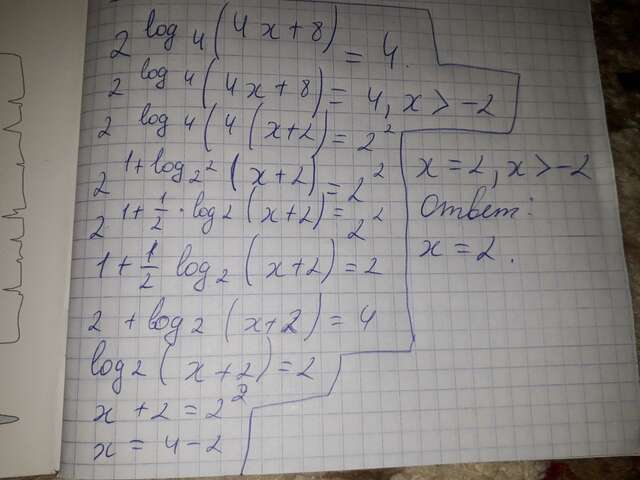 2^log₄(4x+8) = 4.
2^log₄(4x+8) = 4, x > -2
2^log₄(4(x+2) = 2²
2^1+log₂²(x+2) = 2²
2^1+½·log₂(x+2) = 2²
1+½ log₂(x+2) = 2
2 + log₂(x+2) = 4
log₂(x+2) = 2
x + 2 = 2²
x = 4 - 2
x = 2, x > -2
Ответ:
x = 2.